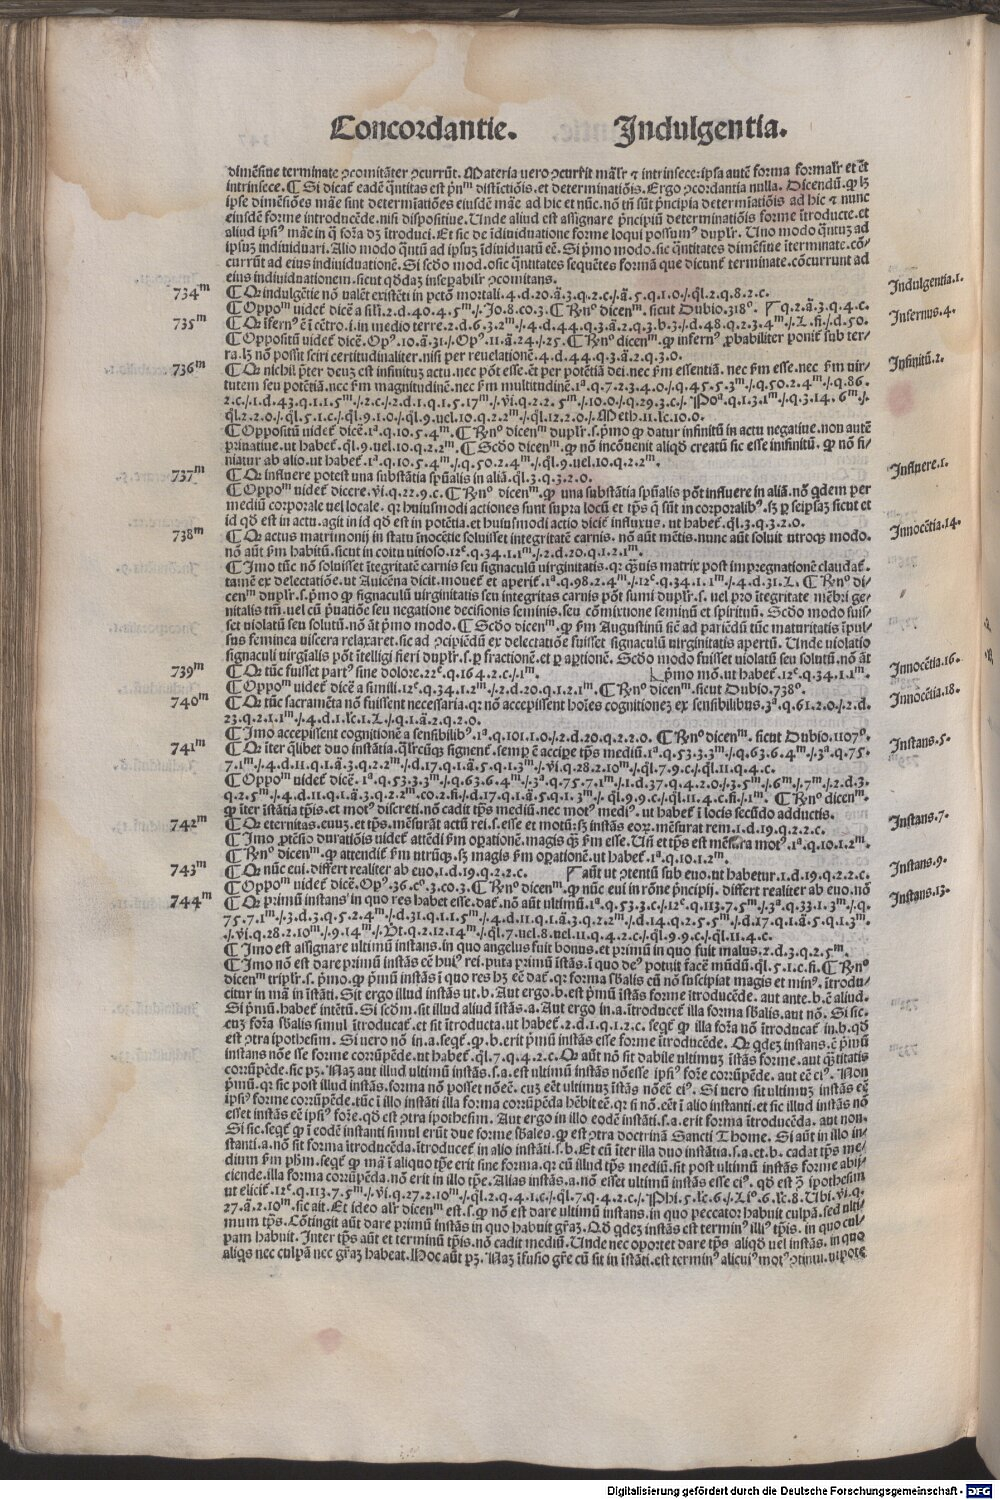 Concordantie. Indulgentia.
dimēsiue terminate ꝯcomitāter ꝯcurrūt. Materia vero ꝯcurrit mālr̄ ⁊ intrinsece: ipsa autē forma formalr̄ et ēt
intrinsece. ¶ Si dicat̄ eadē q̄ntitas est pᵃnᵐ distictiōis. et determinatiōis. Ergo ꝯcordantia nulla. Dicendū. ꝙ lꝫ
ipse dimēsiōes māe sint determīatiōes eiusdē māe ad hic et nūc. nō tn̄ sūt pᵃncipia determīatiōis ad hic ⁊ nunc
eiusdē forme introducēde. nisi dispositiue. Unde aliud est assignare pᵃncipiū determinatiōis forme ītroducte. et
aliud ipsiꝰ māe in q̄ forᵃ dꝫ ītroduci. Et sic de īdiuiduatione forme loqui possumꝰ duplr̄. Uno modo q̄ntuꝫ ad
ipsuꝫ indiuiduari. Alio modo q̄ntū ad ipsuꝫ īdiuiduatū eē. Si pᵃmo modo. sic q̄ntitates dimēsiue īterminate. cō⸗
currūt ad eius indiuiduationē. Si scd̄o mod. osic q̄ntitates sequētes formā que dicunt̄ terminate. cōncurrunt ad
eius indiuiduationem. sicut q̄ddaꝫ inseꝑabilr̄ ꝯcomitans.
734ᵐ ¶ Qꝛ indulgētie nō valēt existēti in pctō mortali. 4. d. 20. ā. 3. q. 2. c./. ā. 5. q. 1. o./. q̄l. 2. q. 8. 2. c. Indulgentia. 1.
¶ Oppoᵐ videt̄ dicē a sil̄i. 2. d. 40. 4. 5ᵐ./. Jo. 8. co. 3. ¶ Rn̄ᵒ dicem̄. sicut Dubio. 318ᵒ. q. 2. ā. 3. q. 4. c.
735ᵐ ¶ Qꝛ īfernꝰ ē ī cētro. s. in medio terre. 2. d. 6. 3. 2ᵐ./. 4. d. 44. q. 3. ā. 2. q. 3. b. 3./. d. 48. q. 2. 3. 4ᵐ./. L. fi./. d. 50. Infernus. 4.
¶ Oppositū videt̄ dicē. Opꝰ. 10. ā. 31./. Opꝰ. 11. ā. 24./. 25. ¶ Rn̄ᵒ dicem̄. ꝙ infernꝰ ꝓbabiliter ponit̄ sub ter⸗
ra. lꝫ nō possit sciri certitudinaliter. nisi per reuelationē. 4. d. 44. q. 3. ā. 2. q. 3. o.
736ᵐ ¶ Qꝛ nichil p̄ter deuꝫ est infinituꝫ actu. nec pōt esse. ēt per potētiā dei. nec ẜm essentiā. nec ẜm esse. nec ẜm vir⸗ Infinitū. 2.
tutem seu potētiā. nec ẜm magnitudinē. nec ẜm multitudinē. 1ᵃ. q. 7. 2. 3. 4. o./. q. 45. 5. 3ᵐ./. q. 50. 2. 4ᵐ./. q. 86.
2. c./. 1. d. 43. q. 1. 1. 5ᵐ./. 2. c./. 2. d. 1. q. 1. 5. 17ᵐ./. vi. q. 2. 2. 5ᵐ./. 10. o./. q. 29. 3. c./. Poᵃ. q. 1. 3. 1ᵐ./. q. 3. 14. 6ᵐ./.
q̄l. 2. 2. o./. q̄l. 5. 1. c./. q̄l. 9. 1. o./. q̄l. 9. vel. 10. q. 2. 2ᵐ./. q̄l. 12. 2. o./. Meth. 11. lc. 10. o.
¶ Oppositū videt̄ dicē. 1ᵃ. q. 10. 5. 4ᵐ. ¶ Rn̄ᵒ dicem̄ duplr̄. s. pᵃmo ꝙ datur infinitū in actu negatiue. non autē
priuatiue. ut habet̄. q̄l. 9. uel. 10. q. 2. 2ᵐ. ¶ Scd̄o dicem̄. ꝙ nō incōuenit aliqd̄ creatū sic esse infinitū. ꝙ nō fi⸗
niatur ab alio. ut habet̄. 1ᵃ. q. 10. 5. 4ᵐ./. q. 50. 2. 4ᵐ./. q̄l. 9. uel. 10. q. 2. 2ᵐ.
737ᵐ ¶ Qꝛ influere potest una substātia spūalis in aliā. q̄l. 3. q. 3. 2. o. Influere. 1.
¶ Oppoᵐ videt̄ dicere. vi. q. 22. 9. c. ¶ Rn̄ᵒ dicem̄. ꝙ una substātia spūalis pōt influere in aliā. nō q̇dem per
mediū corporale vel locale. qꝛ huiusmodi actiones sunt supra locū et tp̄s q̄ sūt in corporalibꝰ. sꝫ ꝑ seipsaꝫ sicut et
id qd̄ est in actu. agit in id qd̄ est in potētia. et huiusmodi actio dicit̄ influxus. ut habet̄. q̄l. 3. q. 3. 2. o.
738ᵐ ¶ Qꝛ actus matrimonij in statu īnocētie soluisset integritatē carnis. nō aūt mētis. nunc aūt soluit utroqꝫ modo. Innocētia. 14.
nō aūt ẜm habitū. sicut in coitu uitioso. 12ᵉ. q. 34. 1. 1ᵐ./. 2. d. 20. q. 1. 2. 1ᵐ.
¶ Imo tūc nō soluisset ītegritatē carnis seu signaculū virginitatis. qꝛ q̄uis matrix post impregnationē claudat̄.
tamē ex delectatiōe. ut Auicēna dicit. mouet̄ et aperit̄. 1ᵃ. q. 98. 2. 4ᵐ./. 12ᵉ. q. 34. 1. 1ᵐ./. 4. d. 31. L. ¶ Rn̄ᵒ di⸗
cem̄ duplr̄. s. pᵃmo ꝙ signaculū virginitatis seu integritas carnis pōt sumi duplr̄. s. vel pro ītegritate mēbri ge⸗
nitalis tm̄. uel cū pᵃuatiōe seu negatione decisionis seminis. seu cōmixtione seminū et spirituū. Scd̄o modo fuis⸗
set violatū seu solutū. nō āt pᵃmo modo. ¶ Scd̄o dicem̄. ꝙ ẜm Augustinū sic̄ ad pariēdū tūc maturitatis īpul⸗
sus feminea uiscera relaxaret. sic ad ꝯcipiēdū ex delectatiōe fuisset signaculū virginitatis apertū. Unde violatio
signaculi virgīalis pōt ītelligi fieri duplr̄. s. ꝑ fractionē. et ꝑ aptionē. Scd̄o modo fuisset violatū seu solutū. nō āt
739ᵐ ¶ Qꝛ tūc fuisset partꝰ sine dolore. 22ᵉ. q. 164. 2. c./. 1ᵐ. pᵃmo mō. ut habet̄. 12ᵉ. q. 34. 1. 1ᵐ. Innocētia. 16.
¶ Oppoᵐ videt̄ dicē a simili. 12ᵉ. q. 34. 1. 2ᵐ./. 2. d. 20. q. 1. 2. 1ᵐ. ¶ Rn̄ᵒ dicem̄. sicut Dubio. 738ᵒ.
740ᵐ ¶ Qꝛ tūc sacramēta nō fuissent necessaria. qꝛ nō accepissent hoīes cognitioneꝫ ex sensibilibus. 3ᵃ. q. 61. 2. o./. 2. d. Innocētia. 18.
23. q. 2. 1. 1ᵐ./. 4. d. 1. lc. 1. L./. q. 1. ā. 2. q. 2. o.
¶ Imo accepissent cognitionē a sensibilibꝰ. 1ᵃ. q. 101. 1. o./. 2. d. 20. q. 2. 2. o. ¶ Rn̄ᵒ dicem̄. sicut Dubio. 1107ᵒ.
741ᵐ ¶ Qꝛ īter q̄libet duo instātia. q̄lr̄cūqꝫ signent̄. semꝑ ē acciꝑe tp̄s mediū. 1ᵃ. q. 53. 3. 3ᵐ./. q. 63. 6. 4ᵐ./. 3ᵃ. q. 75. Instans. 5.
7. 1ᵐ./. 4. d. 11. q. 1. ā. 3. q. 2. 2ᵐ./. d. 17. q. 1. ā. 5. q. 1. 3ᵐ./. vi. q. 28. 2. 10ᵐ./. q̄l. 7. 9. c./. q̄l. 11. q. 4. c.
¶ Oppoᵐ videt̄ dicē. 1ᵃ. q. 53. 3. 3ᵐ./. q. 63. 6. 4ᵐ./. 3ᵃ. q. 75. 7. 1ᵐ./. 1. d. 37. q. 4. 2. o./. 3. 5ᵐ./. 6ᵐ./. 7ᵐ./. 2. d. 3.
q. 2. 5ᵐ./. 4. d. 11. q. 1. ā. 3. q. 2. 2ᵐ. co. 2. fi./. d. 17. q. 1. ā. 5. q. 1. 3ᵐ./. q̄l. 9. 9. c./. q̄l. 11. 4. c. fi./. 1ᵐ. ¶ Rn̄ᵒ dicem̄.
ꝙ īter īstātia tp̄is. et motꝰ discreti. nō cadit tp̄s mediū. nec motꝰ mediꝰ. ut habet̄ ī locis secūdo adductis.
742ᵐ ¶ Qꝛ eternitas. euuꝫ. et tp̄s. mēsurāt actū rei. s. esse et motū: sꝫ instās eoꝝ. mēsurat rem. 1. d. 19. q. 2. 2. c. Instans. 7.
¶ Imo ꝓtēsio duratiōis uidet̄ attēdi ẜm oꝑationē. magis qꝫ ẜm esse. Uñ et tp̄s est mēsura motꝰ. 1ᵃ. q. 10. 1. 2ᵐ.
¶ Rn̄ᵒ dicem̄. ꝙ attendit̄ ẜm utrūqꝫ. sꝫ magis ẜm oꝑationē. ut habet̄. 1ᵃ. q. 10. 1. 2ᵐ.
743ᵐ ¶ Qꝛ nūc eui. differt realiter ab euo. 1. d. 19. q. 2. 2. c. aūt ut ꝯtentū sub euo. ut habetur. 1. d. 19. q. 2. 2. c. Instans. 9.
¶ Oppoᵐ videt̄ dicē. Opꝰ. 36. cᵒ. 3. co. 3. ¶ Rn̄ᵒ dicem̄. ꝙ nūc eui in rōne pᵃncipij. differt realiter ab euo. nō
744ᵐ ¶ Qꝛ primū instans in quo res habet esse. dat̄. nō aūt ultimū. 1ᵃ. q. 53. 3. c./. 12ᵉ. q. 113. 7. 5ᵐ./. 3ᵃ. q. 33. 1. 3ᵐ./. q. Instans. 13.
75. 7. 1ᵐ./. 3. d. 3. q. 5. 2. 4ᵐ./. d. 31. q. 1. 1. 5ᵐ./. 4. d. 11. q. 1. ā. 3. q. 2. 2ᵐ./. d. 14. q. 2. 5. 5ᵐ./. d. 17. q. 1. ā. 5. q. 1. 3ᵐ.
./. vi. q. 28. 2. 10ᵐ./. 9. 14ᵐ./. Ut. q. 2. 12. 14ᵐ./. q̄l. 7. uel. 8. uel. 11. q. 4. 2. c./. q̄l. 9. 9. c./. q̄l. 11. 4. c.
¶ Imo est assignare ultimū instans. in quo angelus fuit bonus. et primū in quo fuit malus. 2. d. 3. q. 2. 5ᵐ.
¶ Imo nō est dare primū instās eē huiꝰ rei. puta primū īstās. ī quo deꝰ potuit facē mūdū. q̄l. 5. 1. c. fi. ¶ Rn̄ᵒ
dicem̄ triplr̄. s. pᵃmo. ꝙ pᵃmū instās ī quo res hꝫ eē dat̄. qꝛ forma sb̄alis cū nō suscipiat magis et minꝰ. ītrodu⸗
citur in mā in īstāti. Sit ergo illud instās ut. b. Aut ergo. b. est pᵃmū īstās forme ītroducēde. aut ante. b. ē aliud.
Si pᵃmū. habet̄ intētū. Si scd̄m. sit illud aliud īstās. a. Aut ergo in. a. ītroducet̄ illa forma sb̄alis. aut nō. Si sic.
cuꝫ forᵃ sb̄alis simul ītroducat̄. et sit ītroducta. ut habet̄. 2. d. 1. q. 1. 2. c. seqt̄ ꝙ illa forᵃ nō ītroducat̄ in. b. qd̄
est ꝯtra ipothesim. Si uero nō in. a. seqt̄. ꝙ. b. erit pᵃmū instās esse forme ītroducēde. Qꝛ q̇deꝫ instans. ē pᵃmū
instans nōe sse forme corrūpēde. ut habet̄. q̄l. 7. q. 4. 2. c. Qꝛ aūt nō sit dabile ultimuꝫ īstās forme. aut q̄titatis
corrūpēde. sic pꝫ. Naꝫ aut illud ultimū instās. s. a. est ultimū instās nōesse ipsiꝰ forᵉ corrūpēde. aut eē eiꝰ. Non
pᵃmū. qꝛ sic post illud instās. forma nō posset nōeē. cuꝫ eēt ultimuꝫ īstās nōeē eiꝰ. Si uero sit ultimuꝫ instās eē
ipsiꝰ forme corrūpēde. tūc ī illo instāti illa forma corrūpēda hēbit eē. qꝛ si nō. eēt ī alio instanti. et sic illud instās nō
esset instās eē ipsiꝰ forᵉ. qd̄ est ꝯtra ipothesim. Aut ergo in illo eodē instāti. s. a. erit forma ītroducēda. aut non.
Si sic. seqt̄ ꝙ ī eodē instanti simul erūt due forme sb̄ales. ꝙ est ꝯtra doctrinā Sancti Thome. Si aūt in illo in⸗
stanti. a. nō sit forma ītroducēda. ītroducet̄ in alio instāti. s. b. Et cū īter illa duo instātia. s. a. et. b. cadat tp̄s me⸗
dium ẜm pħm. seqt̄ ꝙ mā ī aliquo tp̄e erit sine forma. qꝛ cū illud tp̄s mediū. sit post ultimū instās forme abij⸗
ciende. illa forma corrūpēda. nō erit in illo tp̄e. Alias instās. a. nō esset ultimū instās esse eiꝰ. qd̄ est ꝯ̄ ipothesim
ut elicit̄. 12ᵉ. q. 113. 7. 5ᵐ./. vi. q. 27. 2. 10ᵐ./. q̄l. 2. q. 4. 1. c./. q̄l. 7. q. 4. 2. c./. Phi. 5. lc. 6./. Liᵒ. 6. lc. 8. Ubi. vi. q.
27. ā. 2. 10ᵐ. sic ait. Et ideo alr̄ dicem̄ est. s. ꝙ nō est dare ultimū instans. in quo peccator habuit culpā. sed ulti⸗
mum tp̄s. Cōtingit aūt dare primū instās in quo habuit gr̄aꝫ. Qd̄ q̇deꝫ instās est terminꝰ illiꝰ tp̄is. in quo cul⸗
pam habuit. Inter tp̄s aūt et terminū tp̄is. nō cadit mediū. Unde nec oportet dare tp̄s aliqd̄ uel instās. in quo
aliq̇s nec culpā nec gr̄aꝫ habeat. Hoc aūt pꝫ. Naꝫ īfusio gr̄e cū sit in īstāti. est terminꝰ alicuiꝰ motꝰ ꝯtinui. utpote
Digitalisierung gefördert durch die Deutsche Forschungsgemeinschaft - DFG